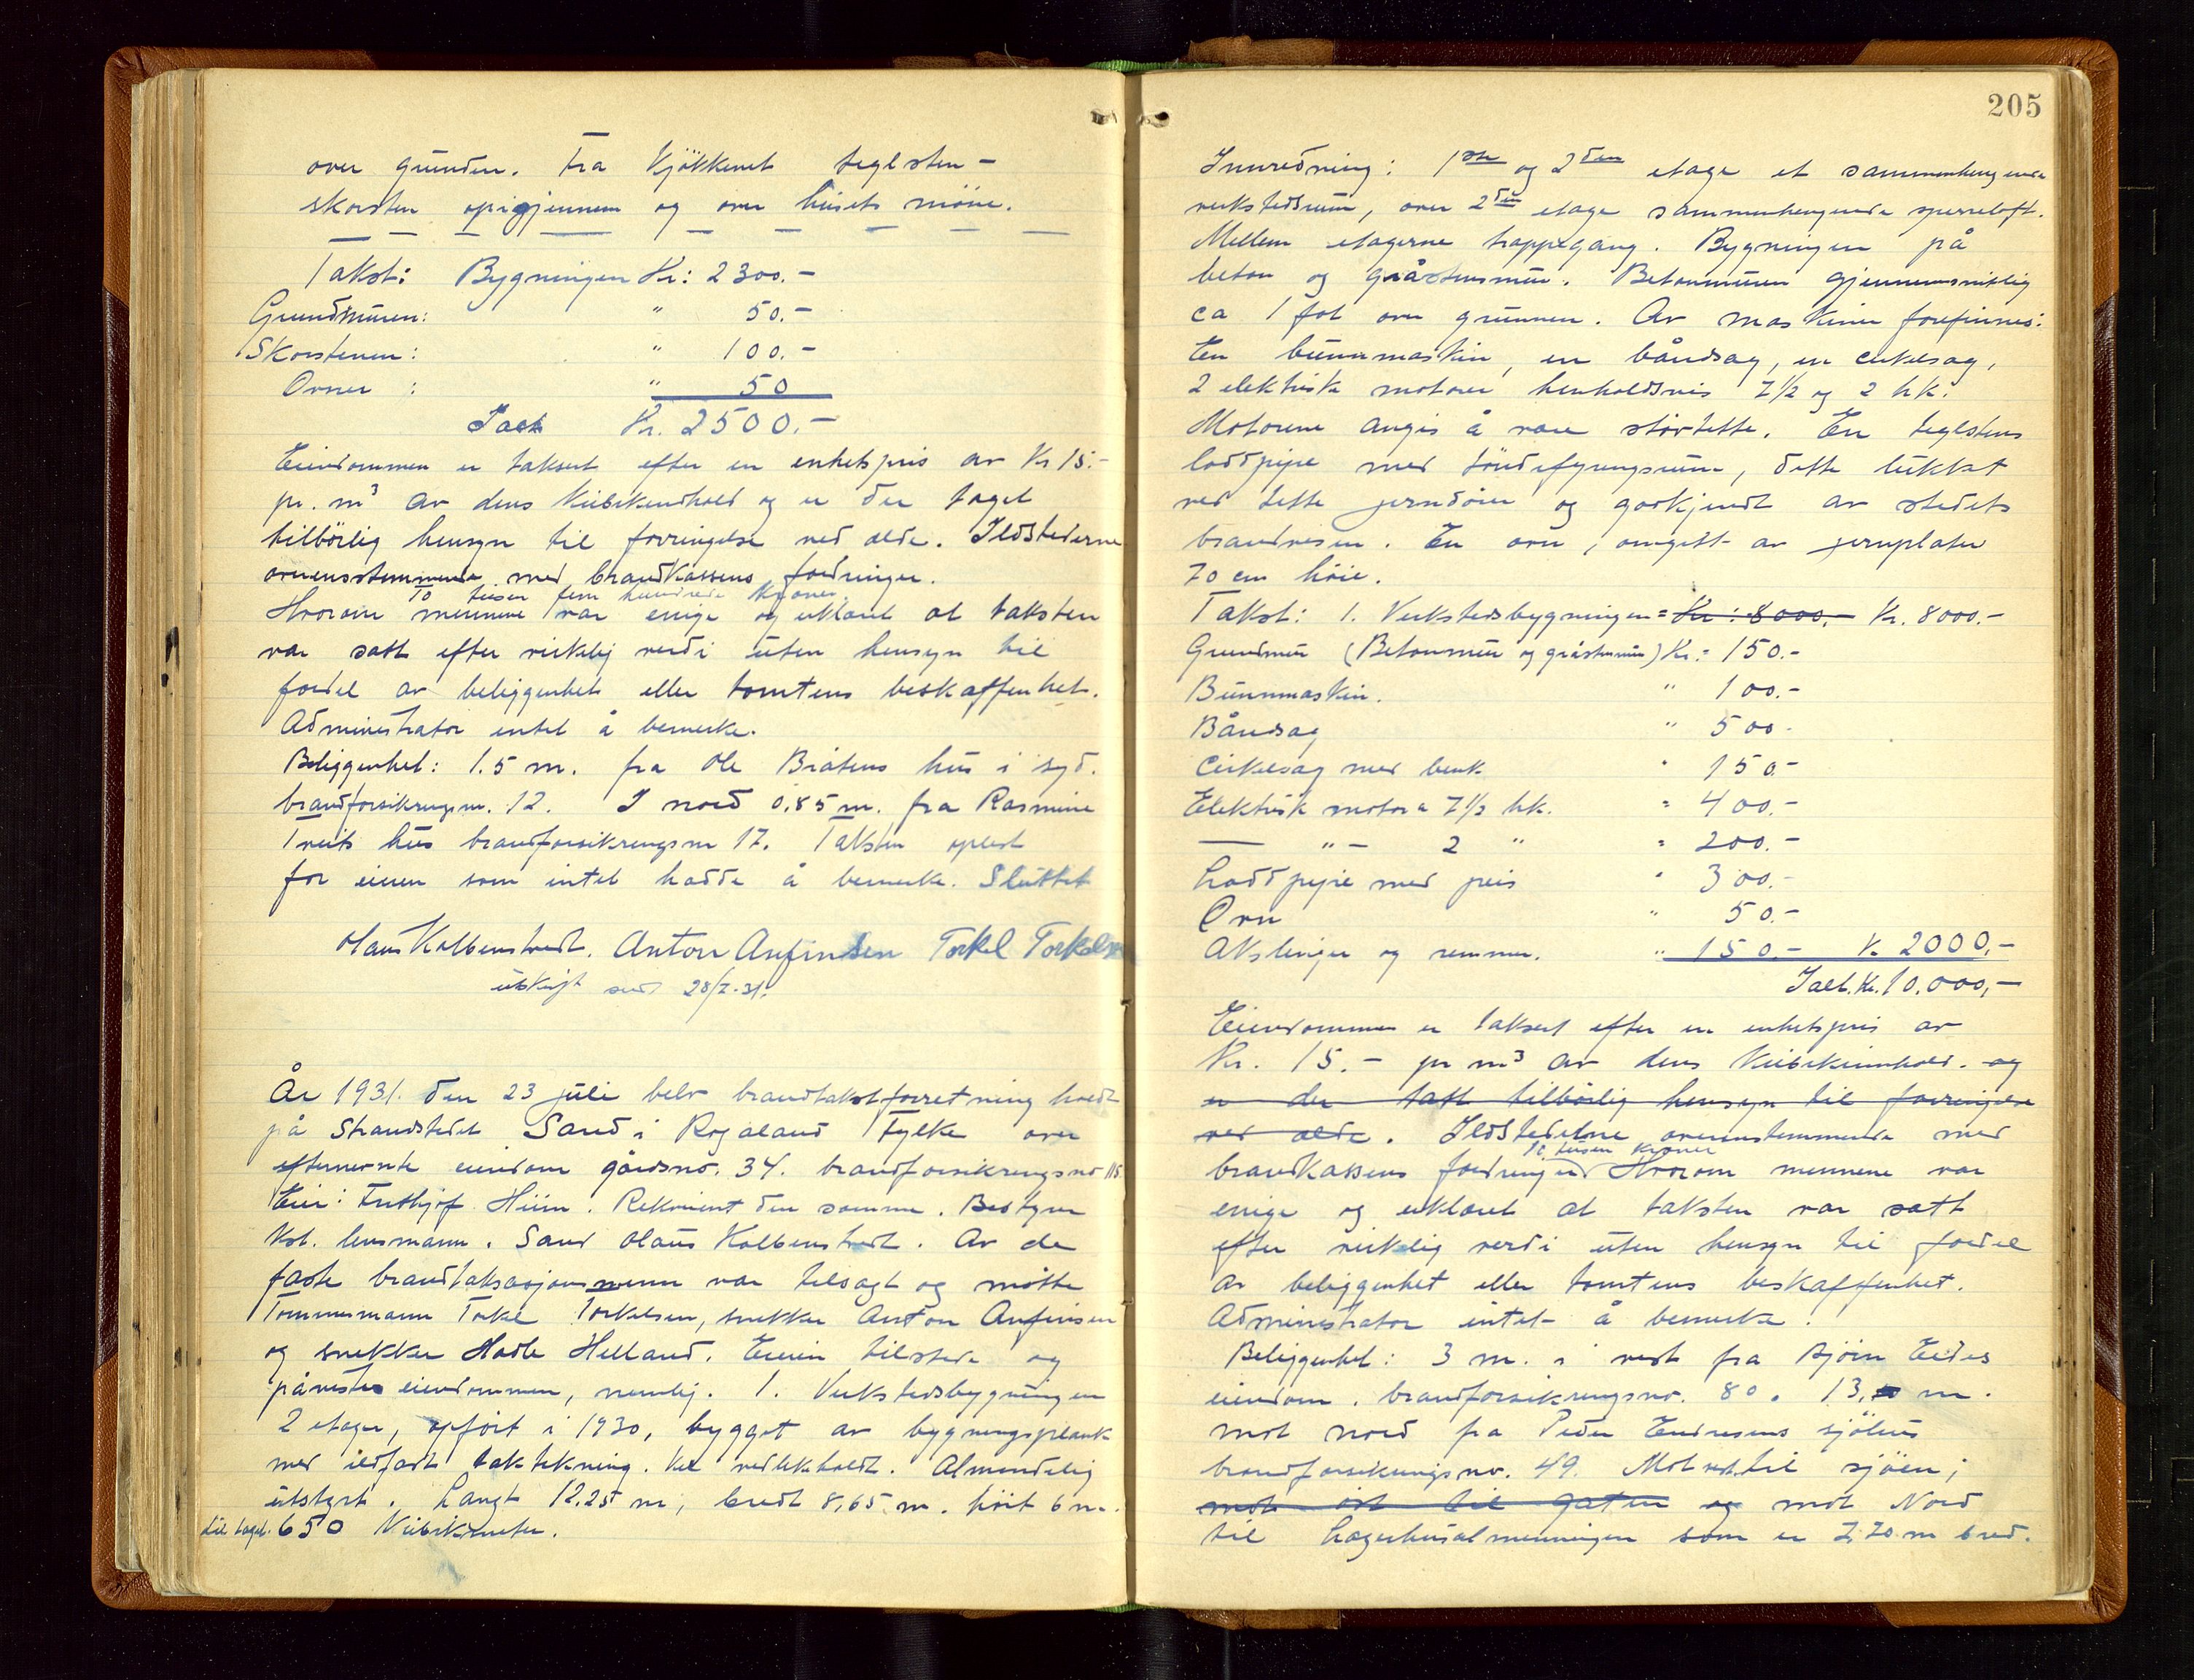 over grunden. Fra kjøkkenet teglsten-
skorsten opigjennem og over husets møne.
Takst: Bygningen Kr: 2300.-
Grundmuren: " 50.-
Skorstenen: " 100.-
Ovner : " 50
Ialt Kr. 2500.-
Eiendommen er taksert efter en enhetspris av Kr 15.-
pr. m³ av dens kubikindhold og er der taget
tilbørlig hensyn til forringelse ved elde. Ildstederne
overensstemmende med brandkassens fordringer.
To tusen fem hundrede kroner
Hvorom mennene var enige og erklæret at taksten
var satt efter virkelig verdi uten hensyn til
fordel av beliggenhet eller tomtens beskaffenhet.
Administrator intet å bemerke.
Beliggenhet: 1.5 m. fra Ole Bråtens hus i syd.
brandforsikringsnr. 12. I nord 0,85 m. fra Rasmine
Tveits hus brandforsikringsnr 17. Taksten oplest
for eieren som intet hadde å bemerke. Sluttet
Olaus Kolbenstvedt. Anton Anfinsen Torkel Torkelsen
utskrift sendt 28/7-31.
År 1931. den 23 juli belv brandtakstforretning holdt
på Strandstedet Sand i Rogaland Fylke over
efternevnte eiendom gårdsno. 34. brandforsikringsno 115.
Eier: Frithjof Hiim. Rekvirent den samme. Bestyrer
Kst. lensmann. Sand Olaus Kolbenstvedt. Av de
faste brandtaksasjonsmenn var tilsagt og møtte
Tømmermann Torkel Torkelsen, snekker Anton Anfinsen
og snekker Hadle Helland. Eieren tilstede og
påvistes eiendommen, nemlig. 1. Verkstedsbygningen
2 etager, opført i 1930, bygget av bygningsplank
med ildfast taktekning. Vel vedlikeholdt. Almindelig
utstyrt. Langt 12.25 m, bredt 8,65 m. høit 6 m.
til taget. 650 Kubikmeter.
205
Innredning: 1ste og 2den etage et sammenhengende
verkstedsrum, over 2den etage sammenhengende sperreloft.
Mellem etagerne trappegang. Bygningen på
beton og gråstensmur. Betonmuren gjennemsnitlig
ca 1 fot over grunnen. Av maskiner forefinnes:
En bunnmaskin, en båndsag, en cirkelsag,
2 elektriske motorer henholdsvis 7½ og 2 hk.
Motorene angis å være støvtette. En teglstens
loddpipe med søndefyringsrum, dette lukket
ved tette jerndører og godkjendt av stedets
brandvesen. En ovn, omgitt av jernplater
70 cm høie.
Takst: 1. Verkstedsbygningen = Kr: 8000.- Kr. 8000.-
Grundmur (Betonmur og gråstensmur) Kr. = 150.-
Bunnmaskin. " 100.-
Båndsag " 500.-
Cirkelsag med benk " 150.-
Elektrisk motor a 7½ hk. = 400.-
— " — 2 " = 200.-
Loddpipe med peis " 300.-
Ovn " 50.-
Akslinger og remmer. " 150.- Kr. 2000.-
Ialt. Kr. 10.000,-
Eiendommen er taksert efter en enhetspris av
Kr. 15.- pr m³ av dens Kubikinnhold. og
er der tatt tilbørlig hensyn til forringelse
ved elde. Ildstederne overensstemmende med
Ti tusen kroner
brandkassens fordringer Hvorom mennene var
enige og erklæret at taksten var satt
efter virkelig verdi uten hensyn til fordel
av beliggenhet eller tomtens beskaffenhet.
Administrator intet å bemerke.
Beliggenhet: 3 m. i vest fra Bjørn Eides
eiendom. brandforsikringsnr. 80. 13, m.
mot nord fra Peder Endresens sjøhus
brandforsikringsnr. 49. Mot vest til sjøen;
mot øst til gaten og mot Nord
til Lagerhusalmenningen som er 7,70 m bred.